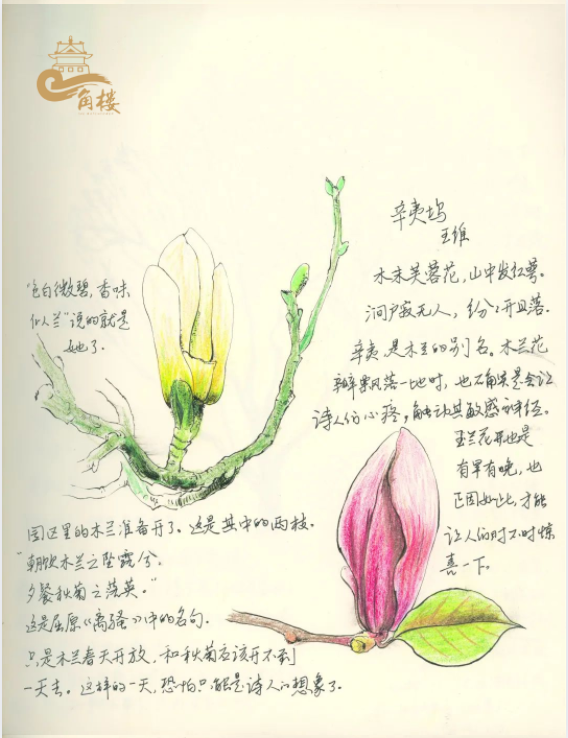 角楼
"色白微碧,香味
似兰"说的就是
她了.
辛夷坞
王维
木末芙蓉花,山中发红萼.
涧户寂无人,纷纷开且落.
辛夷是木兰的别名。木兰花
瓣飘落一地时,也不确实是会让
诗人们心疼,触动其敏感神经。
玉兰花开也是
有早有晚,也
正因如此,才能
让人们时不时惊
喜一下。
园区里的木兰准备开了。这是其中的两枝.
"朝饮木兰之坠露兮.
夕餐秋菊之落英。"
这是屈原《离骚》中的名句.
只是木兰春天开放,和秋菊应该开不到
一天去。这样的一天,恐怕只能是诗人的想象了.